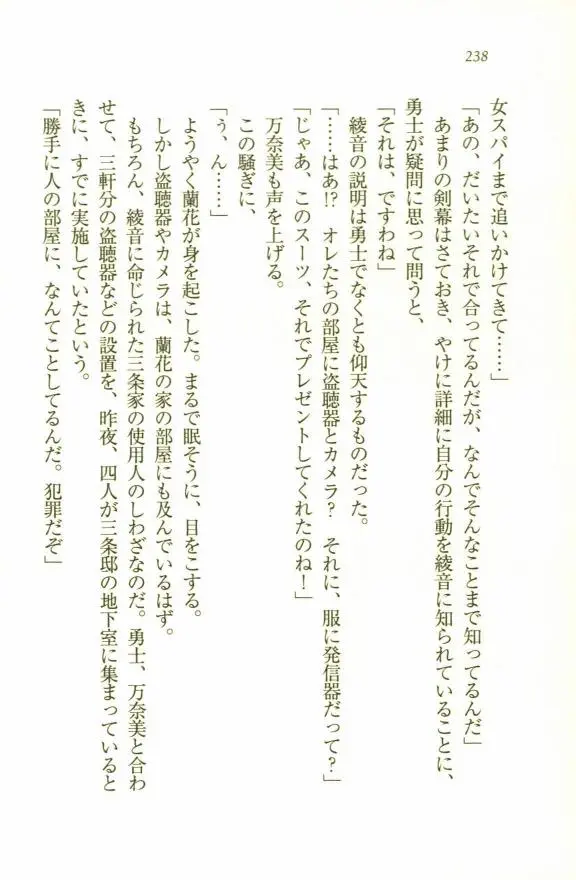 238
女スパイまで追いかけてきて……」
「あの、だいたいそれで合ってるんだが、なんでそんなことまで知ってるんだ」
あまりの剣幕はさておき、やけに詳細に自分の行動を綾音に知られていることに、
勇士が疑問に思って問うと、
「それは、ですわね」
綾音の説明は勇士でなくとも仰天するものだった。
「……はあ!?　オレたちの部屋に盗聴器とカメラ？　それに、服に発信器だって？」
「じゃあ、このスーツ、それでプレゼントしてくれたのね！」
万奈美も声を上げる。
この騒ぎに、
「ぅ、ん……」
ようやく蘭花が身を起こした。まるで眠そうに、目をこする。
しかし盗聴器やカメラは、蘭花の家の部屋にも及んでいるはず。
もちろん、綾音に命じられた三条家の使用人のしわざなのだ。勇士、万奈美と合わ
せて、三軒分の盗聴器などの設置を、昨夜、四人が三条邸の地下室に集まっていると
きに、すでに実施していたという。
「勝手に人の部屋に、なんてことしてるんだ。犯罪だぞ」